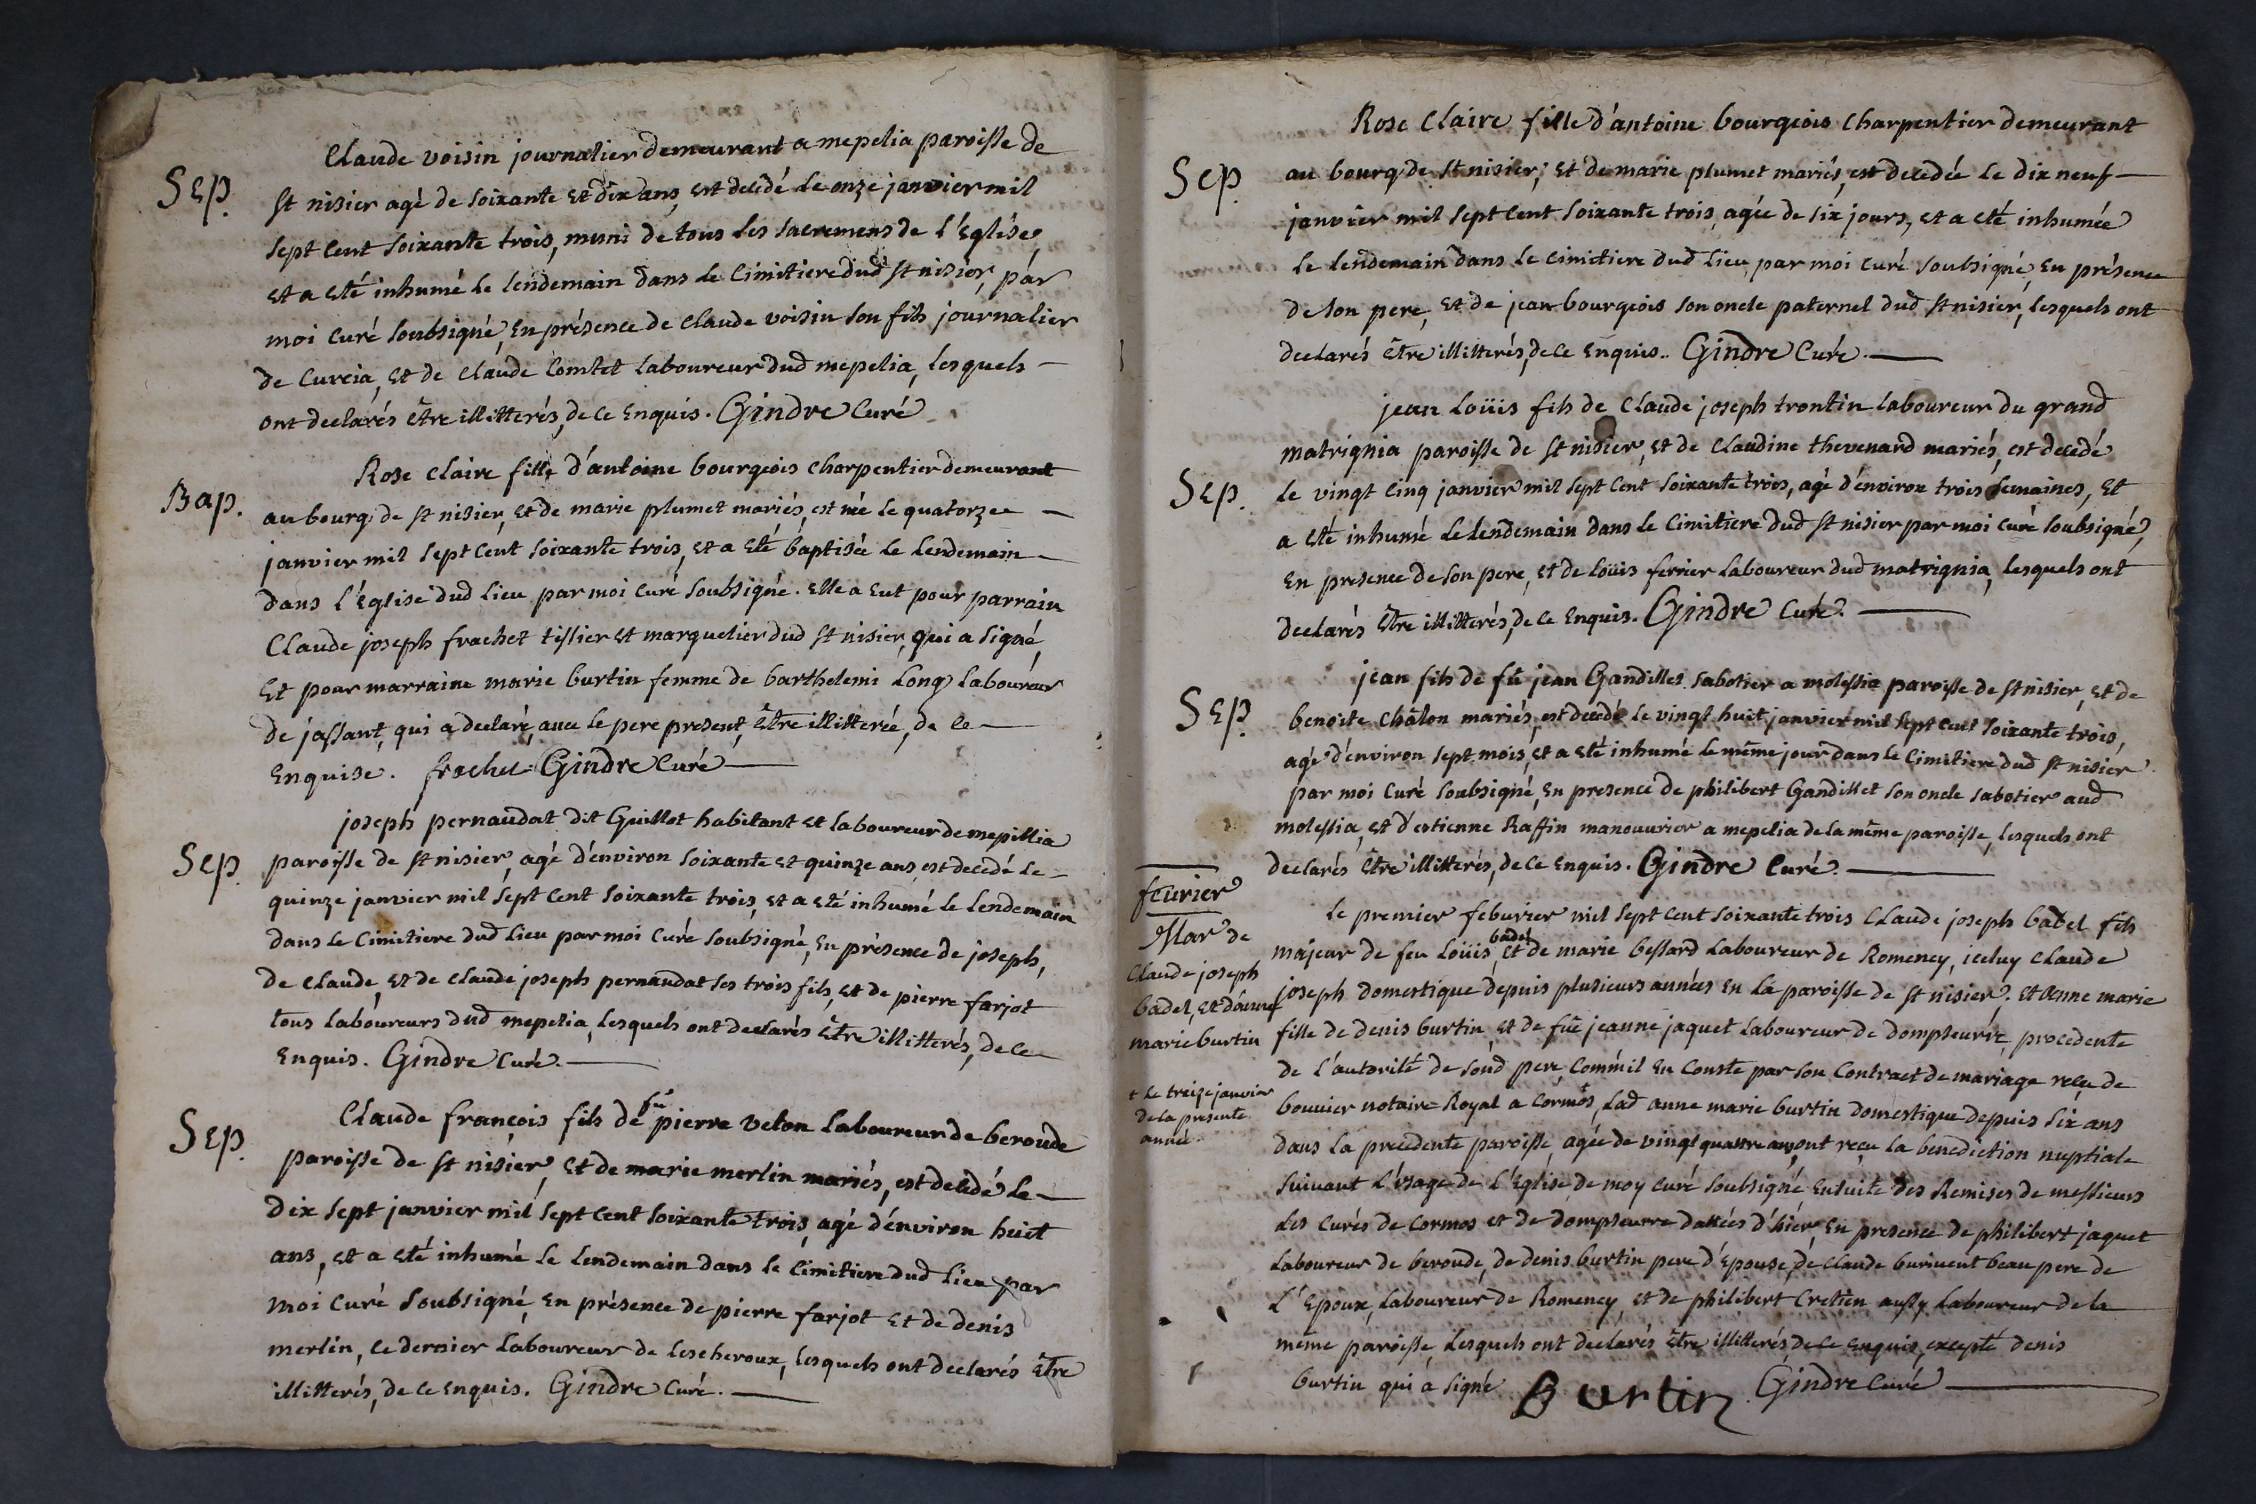 Claude voisin journalier demeurant a mepelia paroisse de
Sep. st nisier agé de soixante et dix ans, est decédé le onze janvier mil
sept cent soixante trois, muni de tous les sacremens de l'église,
et a eté inhumé le lendemain dans le cimitiere dud st nisier, par
moi curé soubsigné, en présence de claude voisin son fils journalier
de curcia, et de claude comtet laboureur dud mepelia, lesquels
ont declarés être illitterés, de ce enquis. Gindre curé
Rose claire fille d'antoine bourgeois charpentier demeurant
Bap. au bourg de st nisier, et de marie plumet mariés, est né le quatorze
janvier mil sept cent soixante trois, et a eté baptisée le lendemain
dans l'église dud lieu par moi curé soubsigné. elle a eut pour parrain
Claude joseph frachet tissier et marguelier dud st nisier, qui a signé,
et pour marraine marie burtin femme de barthelemi long laboureur
de jassant, qui a declaré, avec le pere present, être illitterée, de ce
enquise. frachet Gindre curé
joseph pernaudat dit Guillot habitant et laboureur de mepillia
Sep. paroisse de st nisier, agé d'environ soixante et quinze ans, est decédé le
quinze janvier mil sept cent soixante trois, et a eté inhumé le lendemain
dans le cimitiere dud lieu par moi curé soubsigné, en présence de joseph,
de claude, et de claude joseph pernaudat ses trois fils, et de pierre farjot
tous laboureurs dud mepelia, lesquels ont declarés être illitterés, de ce
enquis. Gindre curé.
Claude françois fils de fû pierre velon laboureur de beroude
Sep. paroisse de st nisier, et de marie merlin mariés, est decédé le
dix sept janvier mil sept cent soixante trois, agé d'environ huit
ans, et a eté inhumé le lendemain dans le cimitiere dud lieu par
moi curé soubsigné, en présence de pierre farjot et de denis
merlin, ce dernier laboureur de lescheroux, lesquels ont declarés être
illitterés, de ce enquis. Gindre curé.
Rose claire fille d'antoine bourgeois charpentier demeurant
Sep. au bourg de st nisier, et de marie plumet mariés, est decedée le dix neuf
janvier mil sept cent soixante trois, agée de six jours, et a eté inhumée
le lendemain dans le cimitiere dud lieu, par moi curé soubsigné, en présence
de son pere, et de jean bourgeois son oncle paternel dud st nisier, lesquels ont
declarés être illitterés, de ce enquis.. Gindre curé.
jean loüis fils de claude joseph trontin laboureur du grand
matrignia paroisse de st nisier, et de claudine thevenard mariés, est decedé
Sep. le vingt cinq janvier mil sept cent soixante trois, agé d'environ trois semaines, et
a eté inhumé le lendemain dans le cimitiere dud st nisier par moi curé soubsigné,
en presence de son pere, et de loüis ferrier laboureur dud matrignia, lesquels ont
declarés être illitterés, de ce enquis. Gindre curé.
jean fils de fû jean Gandillet sabotier a molessia paroisse de st nisier, et de
Sep. benoite châlon mariés, est decédé le vingt huit janvier mil sept cent soixante trois,
agé d'environ sept mois, et a eté inhumé le même jour dans le cimitiere dud st nisier
par moi curé soubsigné, en presence de philibert Gandillet son oncle sabotier aud
molessia, et d'estienne Raffin manouvrier a mepelia de la même paroisse, lesquels ont
declarés être illitterés, de ce enquis. Gindre curé.
feurier
Mar de
claude joseph
badel, et d'anne
marie burtin
+ le treize janvier
de la presente
année.
le premier feburier mil sept cent soixante trois claude joseph badel fils
majeur de feu loüis badel et de marie bessard laboureur de Romeney, iceluy claude
joseph domestique depuis plusieurs années en la paroisse de st nisier. et anne marie
fille de denis burtin, et de fûe jeanne jaquet laboureur de dompseurre, procedente
de l'autorité de soud pere comm'il en conste par son contract de mariage reçu de
bouvier notaire Royal a cormos + lad anne marie burtin domestique depuis six ans
dans la precedente paroisse, agée de vingt quattre ans, ont reçu la benediction nuptiale
suivant l'usage de l'église de moy curé soubsigné ensuite des Remises de messieurs
les curés de cormos et de dompseurre dattées d'hier, en presence de philibert jaquet
laboureur de beroude, de denis burtin pere d'epouse, de claude burivent beau pere de
l'epoux, laboureur de Romeney, et de philibert cretien aussy laboureur de la
même paroisse, lesquels ont declarés être illitterés, de ce enquis, excepté denis
burtin qui a signé. Burtin Gindre curé